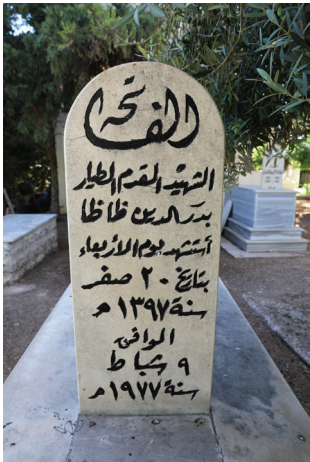 الفاتحة
الشهيد المقدم الطيار
بدر الدين ظاظا
استشهد يوم الاربعاء
بتاريخ ٢٠ صفر
سنة ١٣٩٧ ه
الموافق
٩ شباط
سنة ١٩٧٧ م